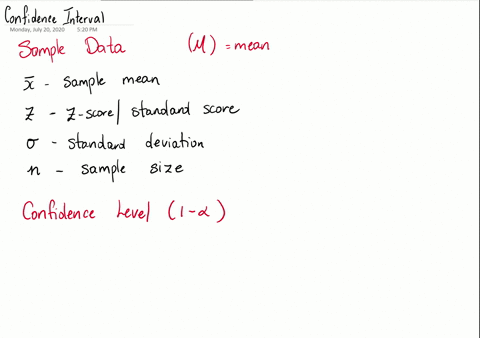 Confidence Interval
Monday, July 20, 2020 5:20 PM
Sample Data (M) = mean
x̄ - sample mean
Z - Z-score/ standard score
σ - standard deviation
n - sample size
Confidence Level (1-α)